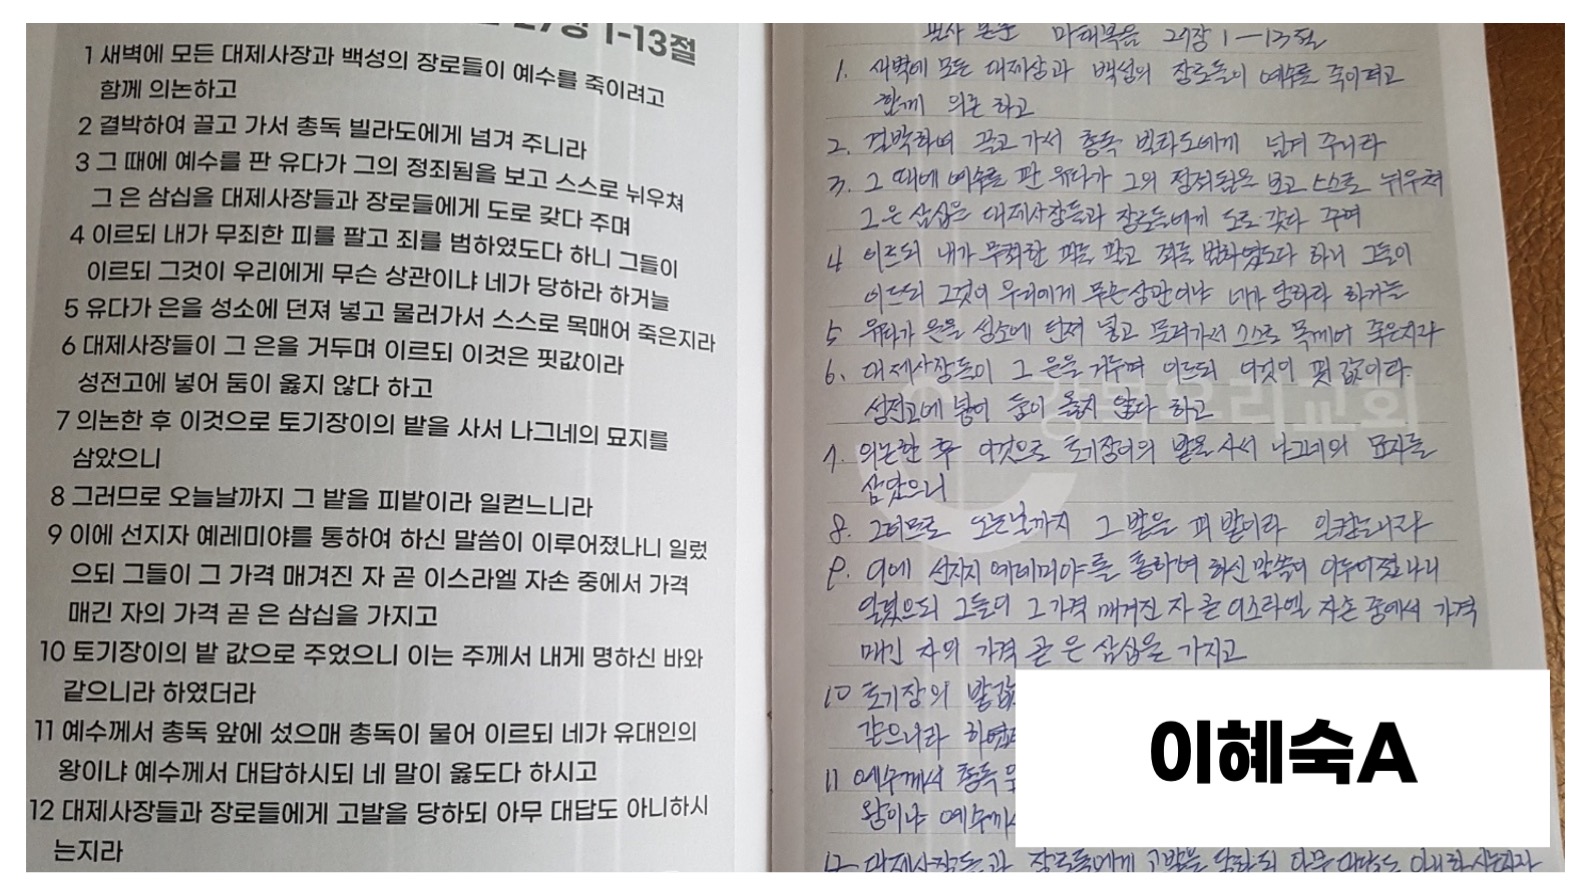 27장 1-13절
1 새벽에 모든 대제사장과 백성의 장로들이 예수를 죽이려고
함께 의논하고
2 결박하여 끌고 가서 총독 빌라도에게 넘겨 주니라
3 그 때에 예수를 판 유다가 그의 정죄됨을 보고 스스로 뉘우쳐
그 은 삼십을 대제사장들과 장로들에게 도로 갖다 주며
4 이르되 내가 무죄한 피를 팔고 죄를 범하였도다 하니 그들이
이르되 그것이 우리에게 무슨 상관이냐 네가 당하라 하거늘
5 유다가 은을 성소에 던져 넣고 물러가서 스스로 목매어 죽은지라
6 대제사장들이 그 은을 거두며 이르되 이것은 핏값이라
성전고에 넣어 둠이 옳지 않다 하고
7 의논한 후 이것으로 토기장이의 밭을 사서 나그네의 묘지를
삼았으니
8 그러므로 오늘날까지 그 밭을 피밭이라 일컫느니라
9 이에 선지자 예레미야를 통하여 하신 말씀이 이루어졌나니 일렀
으되 그들이 그 가격 매겨진 자 곧 이스라엘 자손 중에서 가격
매긴 자의 가격 곧 은 삼십을 가지고
10 토기장이의 밭 값으로 주었으니 이는 주께서 내게 명하신 바와
같으니라 하였더라
11 예수께서 총독 앞에 섰으매 총독이 물어 이르되 네가 유대인의
왕이냐 예수께서 대답하시되 네 말이 옳도다 하시고
12 대제사장들과 장로들에게 고발을 당하되 아무 대답도 아니하시
는지라
필사 본문 마태복음 27장 1-13절
1. 새벽에 모든 대제상과 백성의 장로들이 예수를 죽이려고
함께 의논 하고
2. 결박하여 끌고 가서 총독 빌라도에게 넘겨 주니라
3. 그 때에 예수를 판 유다가 그의 정죄됨은 보고 스스로 뉘우쳐
그 은 삼십은 대제사장들과 장로들에게 도로 갖다 주며
4 이르되 내가 무죄한 피를 팔고 죄를 범하였도다 하니 그들이
이르되 그것이 우리에게 무슨 상관이냐 네가 당하라 하거늘
5 유다가 은을 성소에 던져 넣고 물러가서 스스로 목매어 죽은지라
6. 대제사장들이 그 은을 거두며 이르되 이것이 핏 값이라.
성전고에 넣어 둠이 옳지 않다 하고
7. 의논한 후 이것으로 토기장이의 밭을 사서 나그네의 묘지를
삼았으니
8. 그러므로 오늘날까지 그 밭을 피 밭이라 일컫느니라
9. 이에 선지자 예레미야를 통하여 하신 말씀이 이루어졌나니
일렀으되 그들이 그 가격 매겨진 자 곧 이스라엘 자손 중에서 가격
매긴 자의 가격 곧 은 삼십을 가지고
10 토기장의 밭값
같으니라 하였더
11 예수께서 총독
왕이냐 예수께서
12 대제사장들과 장로들에게 고발을 당하되 아무 대답도 아니하시는지라
우리교회
이혜숙A